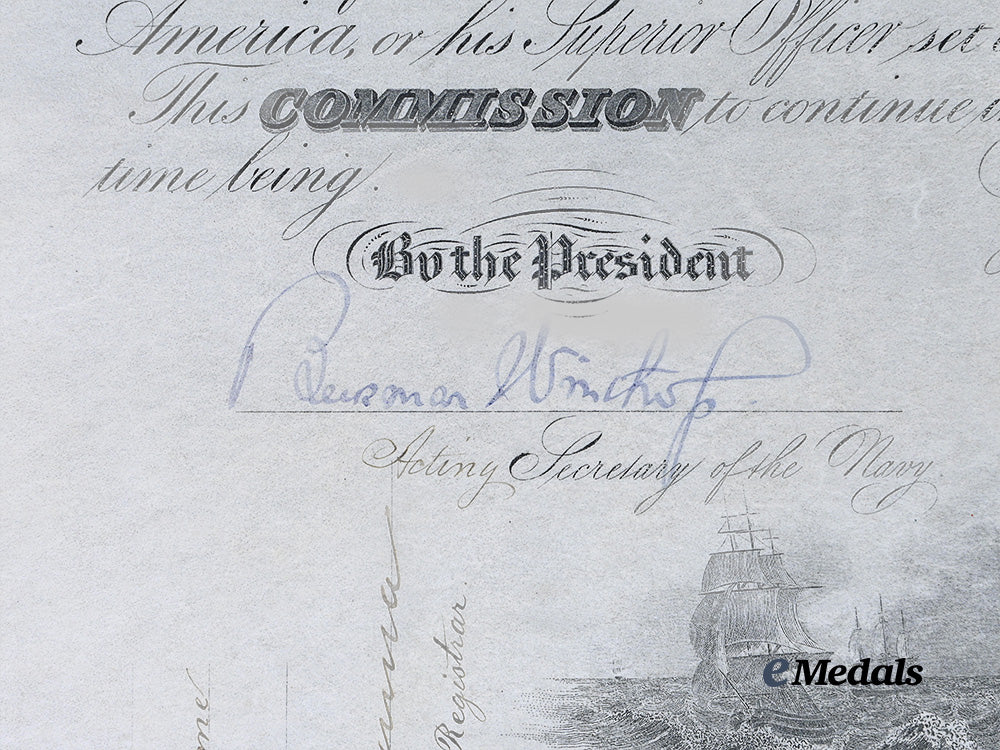 America, or his Superior Officer set
This COMMISSION to continue
time being.
By the President
Beekman Winthrop
Acting Secretary of the Navy.
Registrar
eMedals